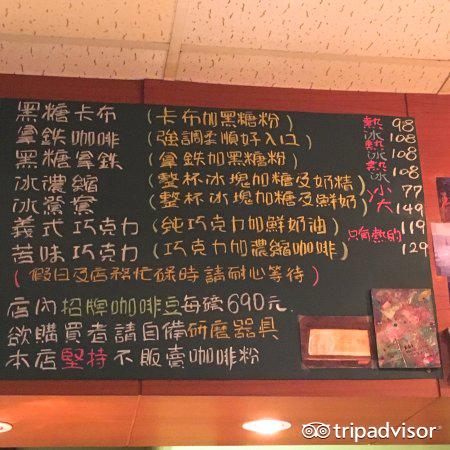 黑糖卡布 (卡布加黑糖粉) 熱 98
拿鐵咖啡 (強調柔順好入口) 冰 108
黑糖拿鐵 (拿鐵加黑糖粉) 熱冰 108
冰濃縮 (整杯冰塊加糖及奶精) 熱冰 108
冰鴛鴦 (整杯冰塊加糖及鮮奶) 小 77
大 149
義式巧克力 (純巧克力加鮮奶油) 只有熱的 119
苦味巧克力 (巧克力加濃縮咖啡) 129
(假日及店務忙碌時請耐心等待)
店內招牌咖啡豆每磅690元
欲購買者請自備研磨器具
本店堅持不販賣咖啡粉
tripadvisor